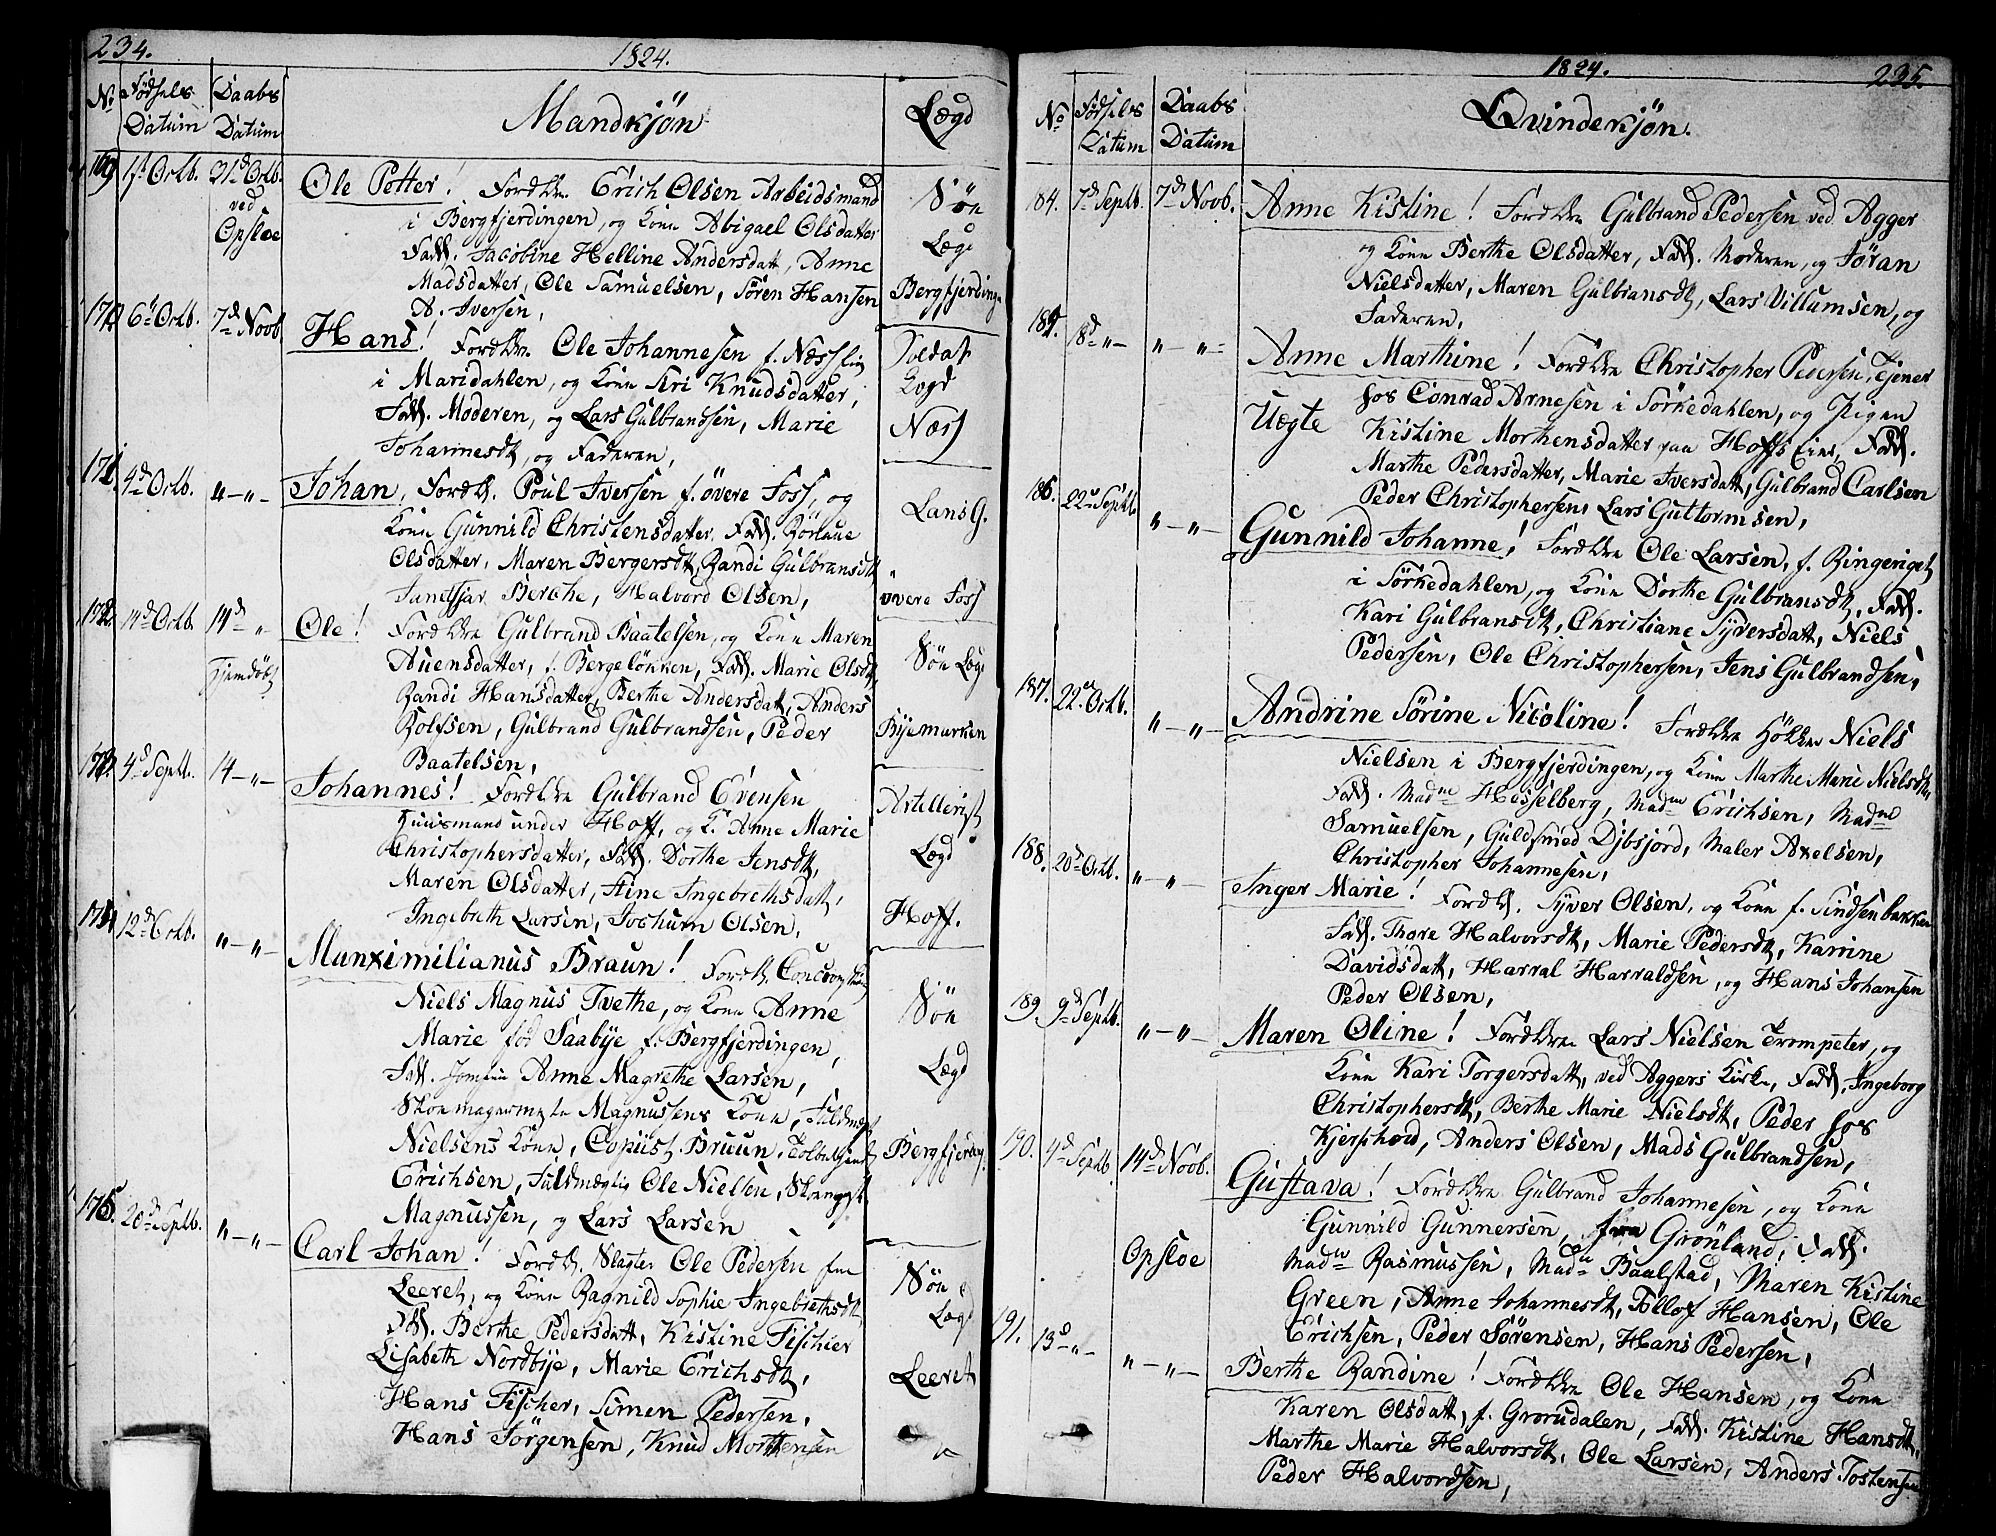 234.
1824.
No
Födsels Datum
Daabs Datum
Mandkjön
Lægd
169
31d Octb. ved Opsloe
Ole Petter! Foreldre Erich Olsen Arbeidsmand
i Bergfjerdingen, og Kone Abigael Olsdatter
Fadd. Jacobine Helline Andersdatt, Anne
Madsdatter, Ole Samuelsen, Sören Hansen
A. Iversen,
Søn
Lægd
Bergfjerding
170
6d Octb.
7d Novb
Hans! Foreldre Ole Johannesen f. Næss
i Maridahlen, og Kone Siri Knudsdatter,
Fadd. Moderen, og Lars Gulbrandsen, Marie
Johannesdt, og Faderen,
Soldat
Lægd
Næss
171
4d Octb.
"—"—
Johan, Foreldr. Poul Iversen f. øvere Foss, og
Kone Gunnild Christensdatter, Fadd.
Olsdatter, Maren Bergersdt, Randi Gulbransdt
Berthe, Halvord Olsen,
Lans G.
øvere Foss
172
14d Octb.
14d "
Hjemdöbt
Ole! Foreldre Gulbrand Baatelsen, og Kone Maren
Auensdatter, f. Bergeløkken, Fadd. Marie Olsdt,
Randi Hansdatter, Berthe Andersdatt, Anders
Rolfsen, Gulbrand Gulbrandsen, Peder
Baatelsen,
Søn Lægd
Byemarken
173
4d Septb.
14—"—
Johannes! Foreldre Gulbrand Evensen
Huusmand under Hoff, og K. Anne Marie
Christophersdatter, Fadd. Dorthe Jensdt,
Maren Olsdatter, Stine Ingebrethsdatt,
Ingebreth Larsen, Jochum Olsen,
Artellerist
Lægd
Hoff.
174
12d Octb.
"—"—
Munximilianus Braun! Foreldr.
Niels Magnus Tvethe, og Kone Anne
Marie fød Saabye f. Bergfjerdingen,
Fadd. Jomfru Anne Magrethe Larsen,
Skoemagermester Magnussens Kone,
Nielsens Kone, Copiist Bruun,
Erichsen, Ole Nielsen,
Magnussen, og Lars Larsen
Søn
Lægd
Bergfjerding
175
20d Septb.
"—"—
Carl Johan! Foreldr. Slagter Ole Pedersen fra
Leeret, og Kone Ragnild Sophie Ingebrethsdt
Fadd. Berthe Pedersdatt, Kistine Fischier
Lisabeth Nordbye, Marie Erichsdt,
Hans Fischer, Simen Pedersen,
Hans Jörgensen, Knud Morthensen
Søn
Lægd
Leeret
1824.
235.
No
Fødsels Datum
Daabs Datum
Qvindekjön.
184.
7d Septb.
7d Novb.
Anne Kistine! Foreldre Gulbrand Pedersen ved Agger
og Kone Berthe Olsdatter, Fadd. Moderen, og Jöran
Nielsdatter, Maren Gulbransdt, Lars Villumsen, og
Faderen,
185.
18d "—
"—"—
Uægte
Anne Marthine! Foreldre Christopher Pedersen, Tjener
hos Conrad Arnesen i Sörkedahlen, og Pigen
Kistine Morthensdatter paa Hoffs Eier, Fadd.
Marthe Pedersdatter, Marie Iversdatt, Gulbrand Carlsen
Peder Christophersen, Lars Guttormsen,
186.
22d Septb.
"—"—
Gunnild Johanne! Foreldre Ole Larsen, f. Ringeriget
i Sörkedahlen, og Kone Dorthe Gulbransdt, Fadd.
Kari Gulbransdt, Christiane Syversdatt, Niels
Pedersen, Ole Christophersen, Jens Gulbrandsen,
187.
22d Octb.
"—"—
Andrine Sörine Nicoline! Foreldre Höker Niels
Nielsen i Bergfjerdingen, og Kone Marthe Marie Nielsdtr
Fadd. Madme Hesselberg, Madme Erichsen, Madme
Samuelsen, Guldsmed Djbsjord, Maler Axelsen,
Christopher Johannesen,
188.
20d Octb.
"—"—
Inger Marie! Foreldr. Syver Olsen, og Kone f. Sindsenbakken
Fadd. Thore Halvorsdt, Marie Pedersdt, Karrine
Davidsdatt, Harral Harraldsen, og Hans Johansen
Peder Olsen,
189
9d Septb.
"—"—
Maren Oline! Foreldre Lars Nielsen Trompeter, og
Kone Kari Torgersdatt, ved Aggers Kirke, Fadd. Ingeborg
Christophersdt, Berthe Marie Nielsdt, Peder hos
Anders Olsen, Mads Gulbrandsen,
190.
4d Septb
14d Novb.
Opsloe
Gustava! Foreldre Gulbrand Johannesen, og Kone
Gunnild Gunnersen, fra Grönland, Fadd.
Madme Rasmussen, Madme Baalstad, Maren Kistine
Green, Anne Johannesdt, Tollof Hansen, Ole
Erichsen, Peder Sörensen, Hans Pedersen,
191.
13d "—
"—"—
Berthe Randine! Foreldre Ole Hansen, og Kone
Karen Olsdatt, f. Grorudalen, Fadd. Kistine Hansdt,
Marthe Marie Halvorsdt, Ole Larsen, Anders Tostensen
Peder Halvordsen,